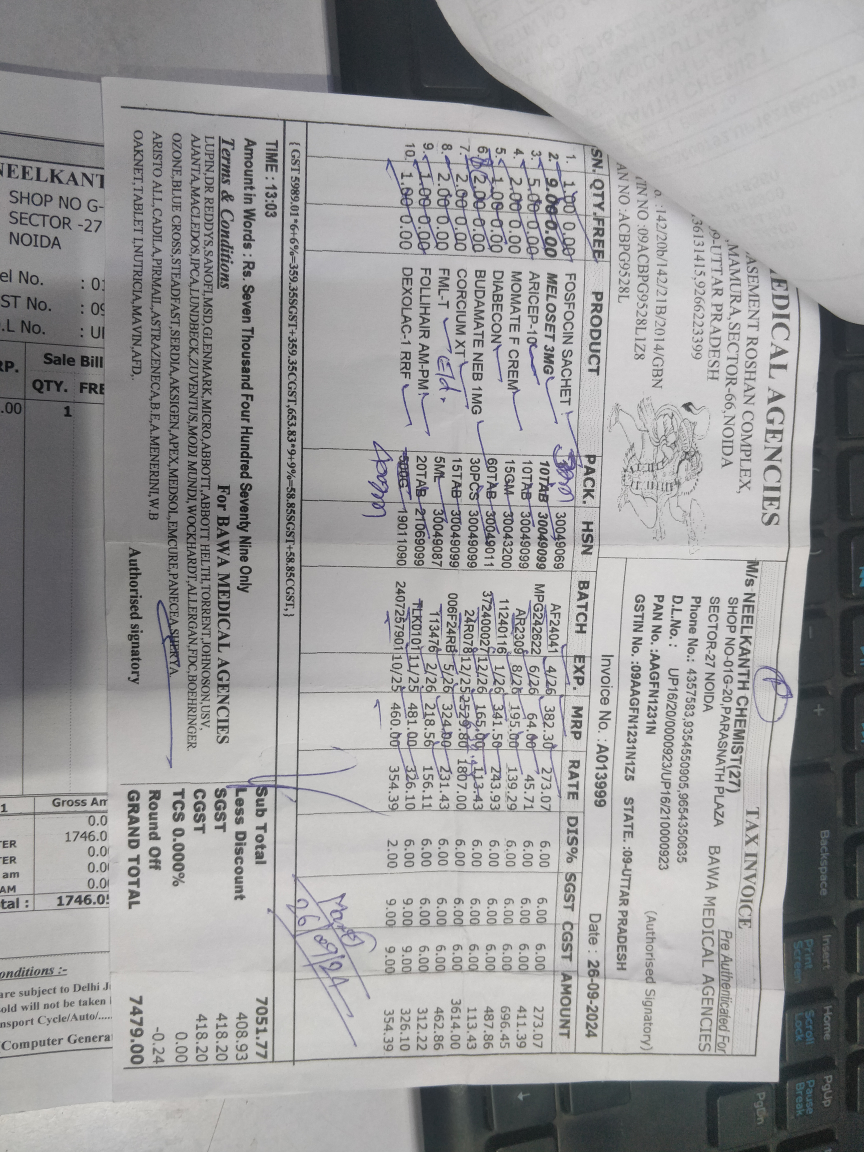 MEDICAL AGENCIES
ASEMENT ROSHAN COMPLEX,
,MAMURA,SECTOR-66,NOIDA
9-UTTAR PRADESH
36131415,9266223399
.:142/20b/142/21B/2014/GBN
IN NO :09ACBPG9528L1Z8
AN NO :ACBPG9528L
TAX INVOICE
Pre Authenticated For
BAWA MEDICAL AGENCIES
(Authorised Signatory)
M/s NEELKANTH CHEMIST(27)
SHOP NO-01G-20,PARASNATH PLAZA
SECTOR-27 NOIDA
Phone No.: 4357583,9354550905,9654350635
D.L.No.: UP16/20/000923/UP16/210000923
PAN No.:AAGFN1231N
GSTIN No. :09AAGFN1231N1Z5 STATE. :09-UTTAR PRADESH
Invoice No. :A013999 Date : 26-09-2024
SN. QTY. FREE PRODUCT PACK. HSN BATCH EXP. MRP RATE DIS% SGST CGST AMOUNT
1. 1.00 0.00 FOSFOCIN SACHET 30049069 AF24041 4/26 382.30 273.07 6.00 6.00 6.00 273.07
2. 9.00 0.00 MELOSET 3MG 10TAB 30049099 MPG242622 6/26 64.00 45.71 6.00 6.00 6.00 411.39
3. 5.00 0.00 ARICEP-10 10TAB 30049099 AR2309 8/26 195.00 139.29 6.00 6.00 6.00 696.45
4. 2.00 0.00 MOMATE F CREM 15GM 30043200 11240116 1/26 341.50 243.93 6.00 6.00 6.00 487.86
5. 1.00 0.00 DIABECON 60TAB 30049011 372400027 12/26 165.00 113.43 6.00 6.00 6.00 113.43
6. 2.00 0.00 BUDAMATE NEB 1MG 30PCS 30049099 24R078 12/25 2529.80 1807.00 6.00 6.00 6.00 3614.00
7. 2.00 0.00 CORCIUM XT 15TAB 30049099 006F24RB 5/26 324.00 231.43 6.00 6.00 6.00 462.86
8. 2.00 0.00 FML-T 5ML 30049087 113476 2/26 218.56 156.11 6.00 6.00 6.00 312.22
9. 1.00 0.00 FOLLIHAIR AM-PM 20TAB 21069099 TLK0101 11/25 481.00 326.10 6.00 9.00 9.00 326.10
10. 1.00 0.00 DEXOLAC-1 RRF 19011090 240725790 110/25 460.00 354.39 2.00 9.00 9.00 354.39
400gm
26/09/24
{ GST 5989.01*6+6%=359.35SGST+359.35CGST,653.83*9+9%=58.85SGST+58.85CGST,}
TIME : 13:03
Amount in Words : Rs. Seven Thousand Four Hundred Seventy Nine Only
Terms & Conditions
For BAWA MEDICAL AGENCIES
LUPIN,DR REDDYS,SANOFI,MSD,GLENMARK,MICRO,ABBOTT,ABBOTT HELTH,TORRENT,JOHNOSON,USV,
AJANTA,MACLEDOS,IPCA,LUNDBECK,ZUVENTUS,MODI MUNDI,WOCKHARDT,ALLERGAN,FDC,BOEHRINGER
OZONE,BLUE CROSS,STEADFAST,SERDIA,AKSIGEN,APEX,MEDSOL,EMCURE,PANECEA,SURYA
ARISTO ALL,CADILA,PIRMAIL,ASTRAZENECA,B.E,A.MENERINI,W.B
OAKNET,TABLET I,NUTRICIA,MAVIN,AFD,
Authorised signatory
Sub Total 7051.77
Less Discount 408.93
SGST 418.20
CGST 418.20
TCS 0.000% 0.00
Round Off -0.24
GRAND TOTAL 7479.00
NEELKANT
SHOP NO G-
SECTOR -27
NOIDA
el No. : 01
ST No. : 09
.L No. : U
RP. Sale Bill
QTY. FRE
.00 1
1 Gross Am
0.0
ER 1746.0
ER 0.0
am 0.0
AM 0.0
tal : 1746.05
onditions :-
are subject to Delhi J
old will not be taken
nsport Cycle/Auto/.....
Computer Genera
Backspace
Insert
Print Screen
Home
Scroll Lock
PgUp
Pause Break
PgDn